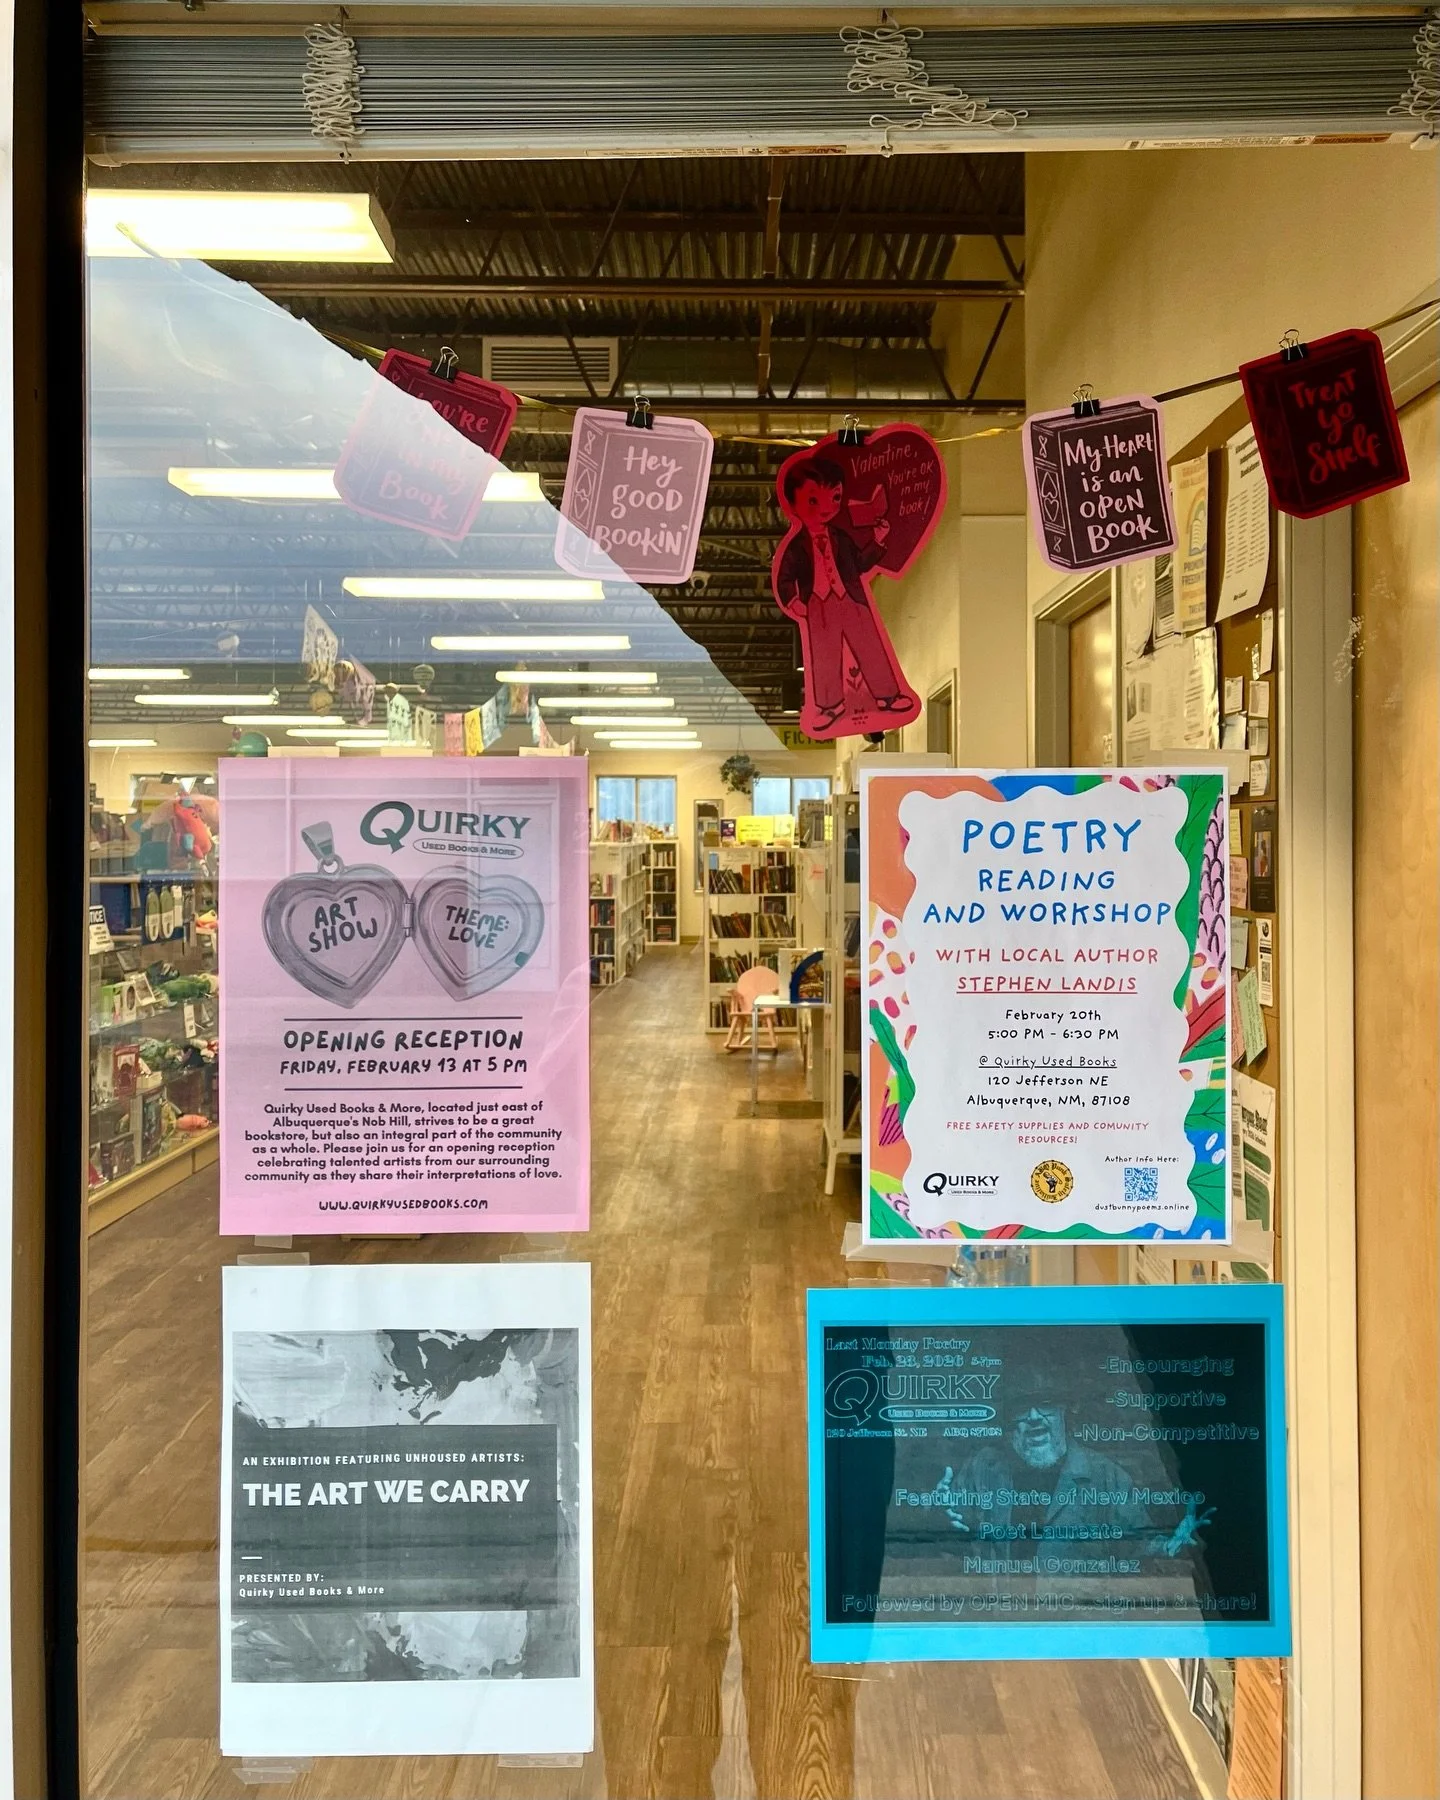 You're
Book
Hey
good
Bookin'
Valentine,
You're OK
in my
book!
My Heart
is an
open
Book
Treat
Yo
Shelf
FICT
QUIRKY
USED BOOKS & MORE
ART
SHOW
THEME:
LOVE
OPENING RECEPTION
FRIDAY, FEBRUARY 13 AT 5 PM
Quirky Used Books & More, located just east of
Albuquerque's Nob Hill, strives to be a great
bookstore, but also an integral part of the community
as a whole. Please join us for an opening reception
celebrating talented artists from our surrounding
community as they share their interpretations of love.
WWW.QUIRKYUSEDBOOKS.COM
POETRY
READING
AND WORKSHOP
WITH LOCAL AUTHOR
STEPHEN LANDIS
February 20th
5:00 PM - 6:30 PM
@ Quirky Used Books
120 Jefferson NE
Albuquerque, NM, 87108
FREE SAFETY SUPPLIES AND COMUNITY
RESOURCES!
Author Info Here:
QUIRKY
USED BOOKS & MORE
dustbunnypoems.online
AN EXHIBITION FEATURING UNHOUSED ARTISTS:
THE ART WE CARRY
PRESENTED BY:
Quirky Used Books & More
Last Monday Poetry
Feb. 23, 2026 5-7pm
QUIRKY
USED BOOKS & MORE
120 Jefferson St. NE ABQ 87108
-Encouraging
-Supportive
-Non-Competitive
Featuring State of New Mexico
Poet Laureate
Manuel Gonzalez
Followed by OPEN MIC...sign up & share!